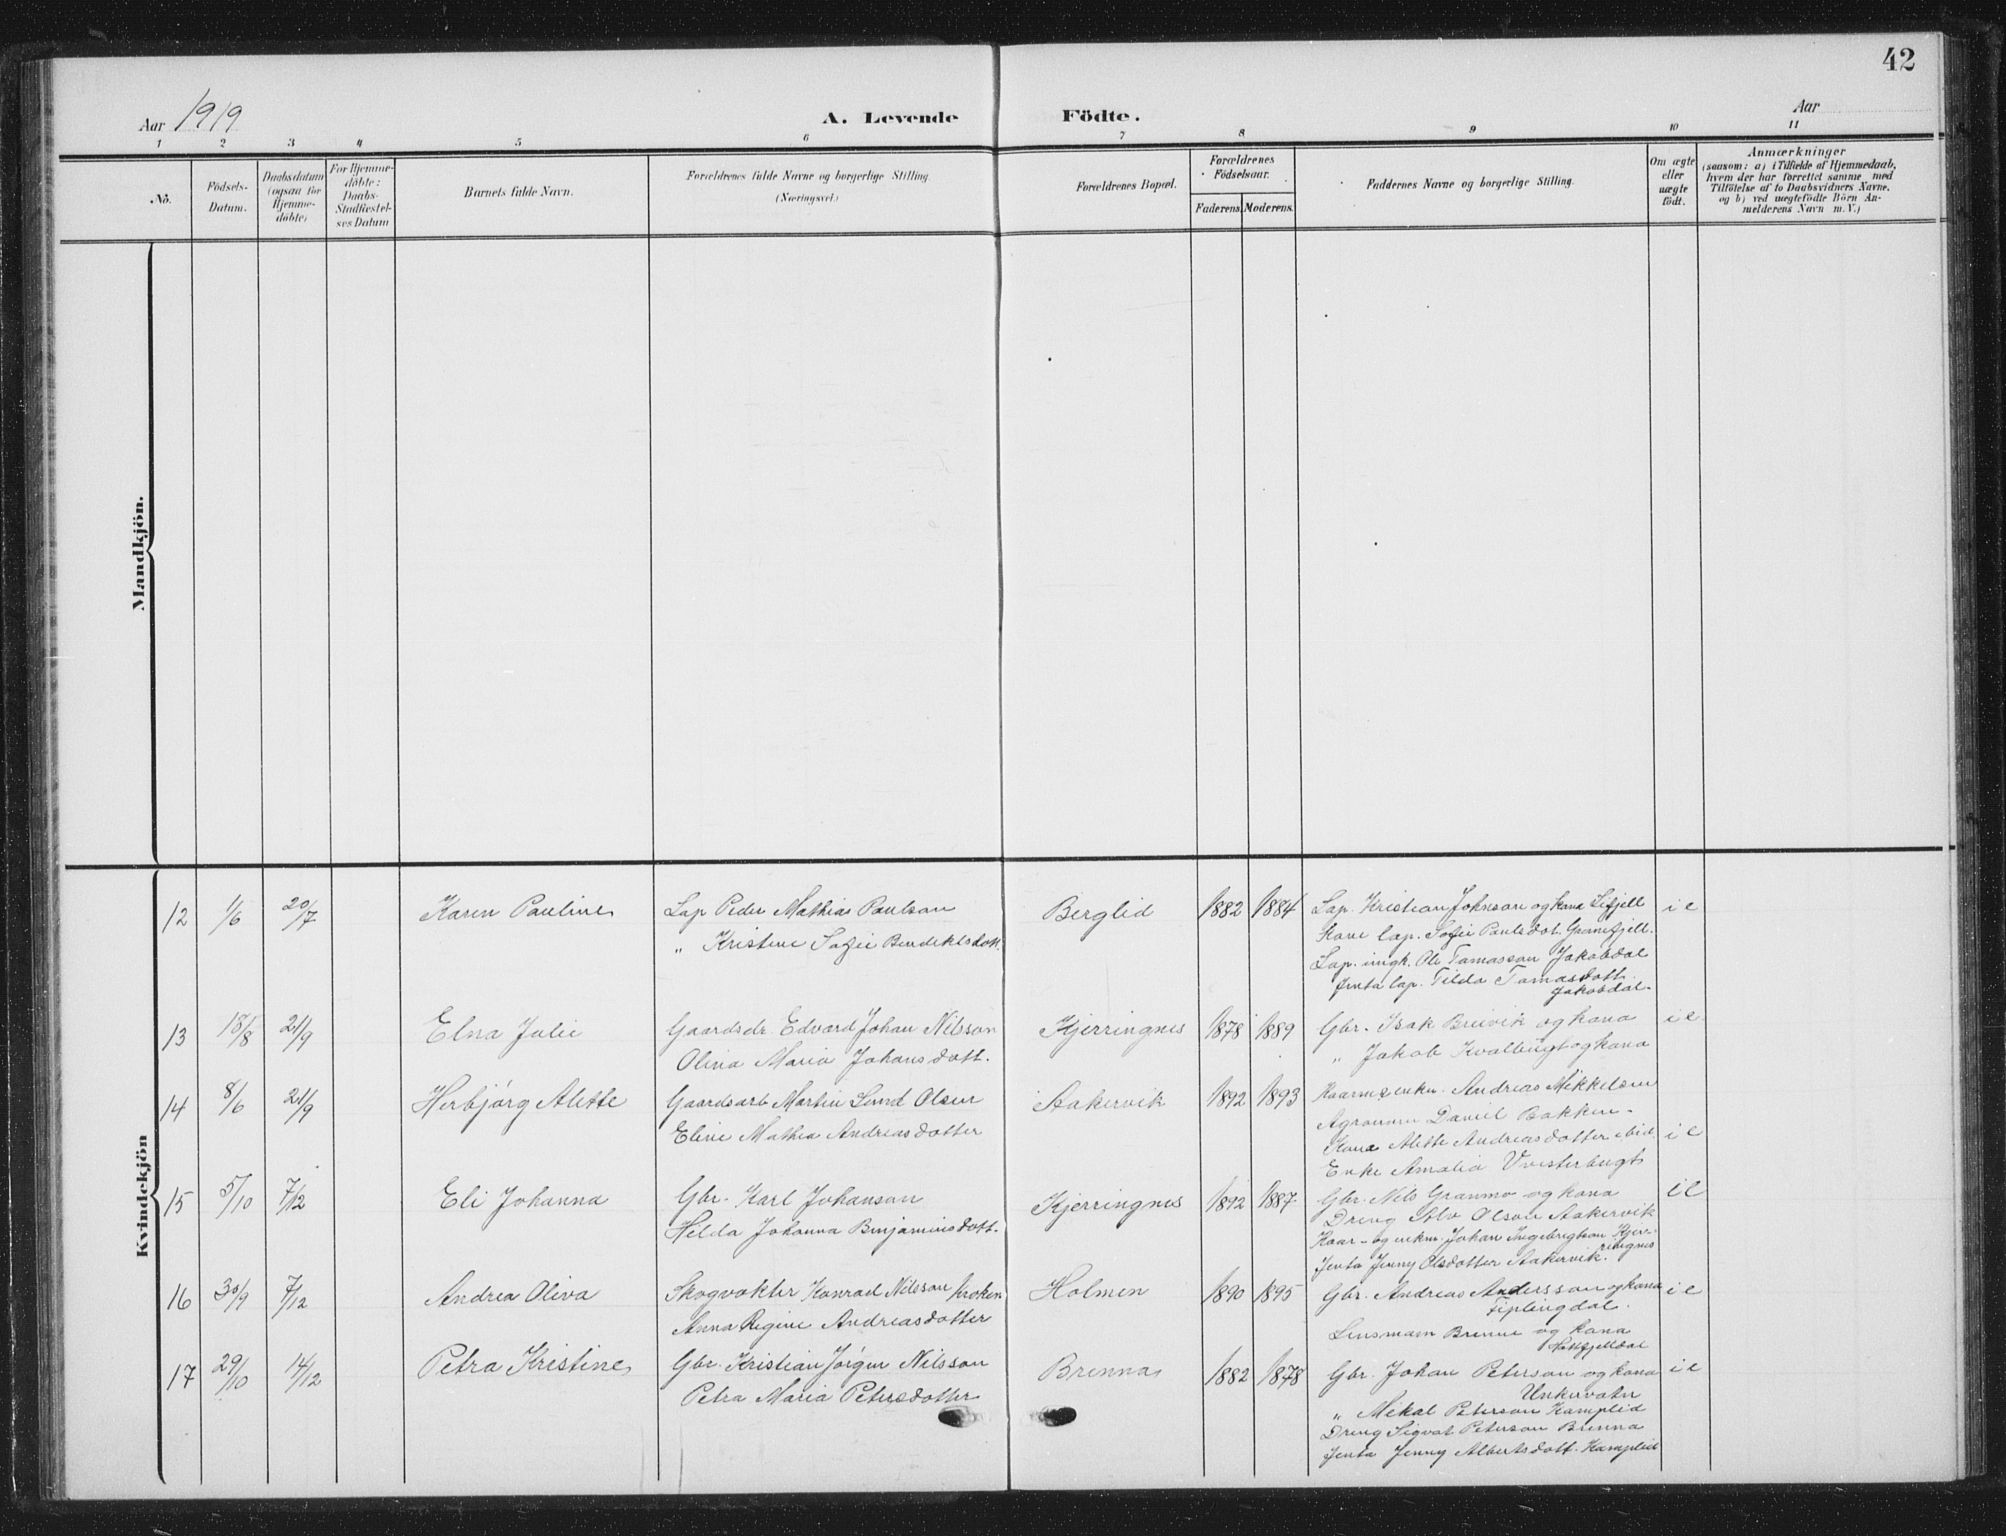 42
Aar 1919
A. Levende Födte.
Aar
1 2 3 4 5 6 7 8 9 10 11
No.
Födsels-Datum.
Daabsdatum (ogsaa for Hjemme-döbte)
For Hjemme-döbte: Daabs-Stadfestel-ses Datum
Barnets fulde Navn.
Forældrenes fulde Navne og borgerlige Stilling.
(Næringsvei.)
Forældrenes Bopæl.
Forældrenes Födselsaar.
Faderens. Moderens.
Faddernes Navne og borgerlige Stilling.
Om ægte eller uægte födt.
Anmærkninger
(saasom: a) i Tilfælde af Hjemmedaab,
hvem der har forrettet samme med
Tilföielse af to Daabsvidners Navne,
og b) ved uegtefödte Börn An-
melderens Navn m.V.)
Mandkjön.
Kvindekjön
12 1/6 20/7 Karen Pauline Lap Peder Mathias Paulson Berglid 1882 1884 Lap. Kristian Johnson og kona i e
„ Kristine Sofie Bendiktsdott. Kone lap. Sofie Paulsdot. Granefjell.
Lap. ungk. Ole Tomasson Jakobdal
Jenta lap. Tilda Tomasdott
Jakobdal.
13 18/8 21/9 Elna Julie Gaardsdr. Edvard Johan Nilsson Kjerringnes 1878 1889 Gbr. Isak Breivik og kona i e
Olina Maria Johansdott. „ Jakob Kvalbugt og kona
14 8/6 21/9 Herbjørg Alette Gaardsarb Martin Lund Olsen Aakervik 1892 1893 Kaarm enkm. Andreas Mikkelsen
Eline Mathea Andreasdotter Agronom Daniel Bakken.
Kona Alette Andreasdotter ibid. i e
Enke Amalia Vvesterbugt
15 5/10 7/12 Eli Johanna Gbr. Karl Johanson Kjerringnes 1892 1887 Gbr. Nils Granmo og kona i e
Helda Johanna Benjaminsdott. Dreng Olson Aakervik
Kaar- og enkm. Johan Ingebrigtson Kjer-
ringnes
Jenta Jenny Olsdotter Aakervik.
16 30/9 7/12 Andrea Oliva Skogvokter Konrad Nilsson Kroken Holmen 1890 1895 Gbr. Andreas Andersson og kona i e
Fiplingdal.
Anna Regine Andreasdotter Lensmann Brenne og kona
Hatfjelldal
17 29/10 14/12 Petra Kristine Gbr. Kristian Jørgen Nilsson Brenna 1882 1878 Gbr. Johan Peterson og kona i e
Unkervatn
Petra Maria Petersdotter „ Mikal Peterson Kamplid
Dreng Sigvat Peterson Brenna
Jenta Jenny Albertsdott. Kamplid